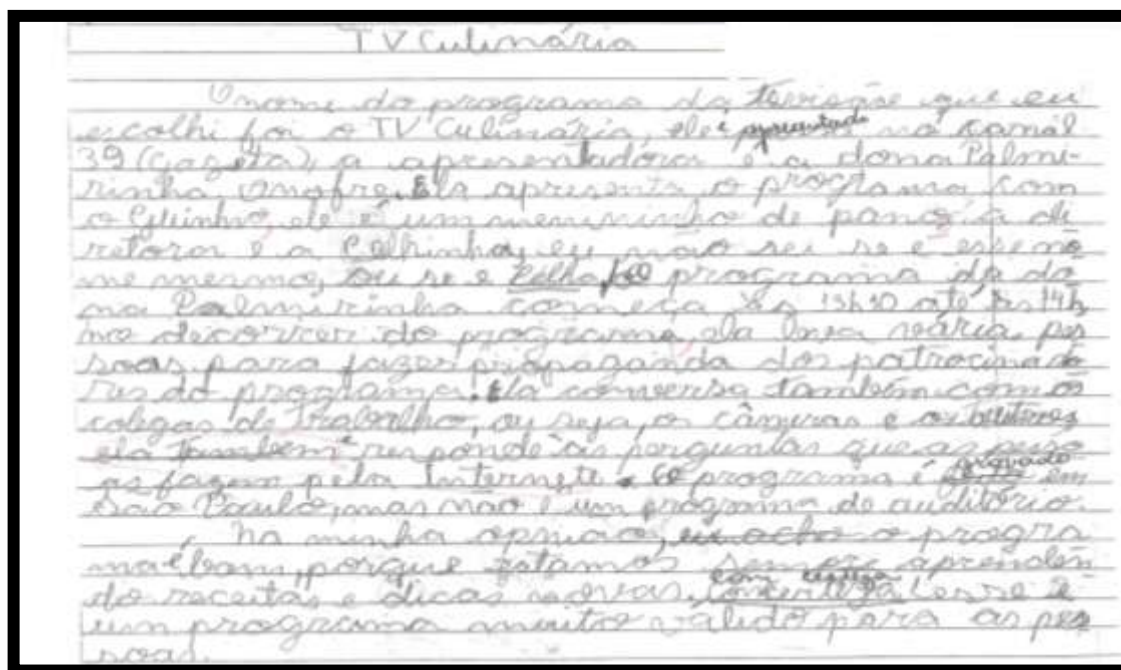 TV Culinária
O nome do programa da tevisão que eu
escolhi foi o TV Culinária, ele é apresentado no canal
39 (gazeta), a apresentadora é a dona Palmi-
rinha Onofre. Ela apresenta o programa com
o Guinho, ele é um menininho de pano, a di
retora é a eu não sei se é esse no
me mesmo, ou se é programa da do
na Palmirinha começa às 13h10 até às 14h
no decorrer do programa, ela leva várias pes
soas para fazer propaganda dos patrocinado
res do programa. Ela conversa também com os
colegas de trabalho, ou seja, os câmeras e os
ela também responde às perguntas que as pesso
as fazem pela Internet. O programa é gravado em
São Paulo, mas não é um programa de auditório.
Na minha opnião, eu acho o progra
ma é bom, porque estamos sempre aprenden
do receitas e dicas novas, com certeza esse é
um programa muito valido para as pes
soas.